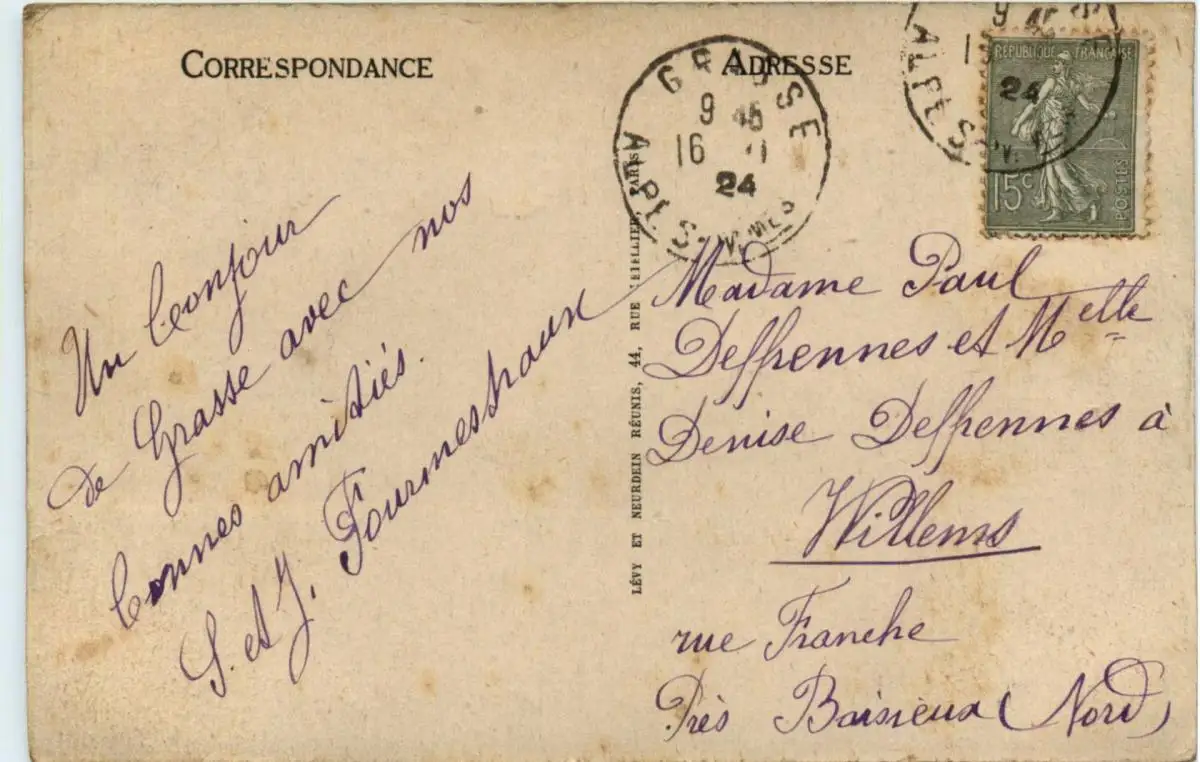 CORRESPONDANCE
ADRESSE
GRASSE
9 45
16
24
ALPES
9 45
24
ALPES
RÉPUBLIQUE FRANÇAISE
15c
POSTES
Un bonjour
de Grasse avec nos
bonnes amitiés.
S. et J. Fournestraux
LÉVY ET NEURDEIN RÉUNIS, 44, RUE LETELLIER, PARIS
Madame Paul
Deffrennes et Melle
Denise Deffrennes à
Willems
rue Franche
Près Baisieux (Nord)